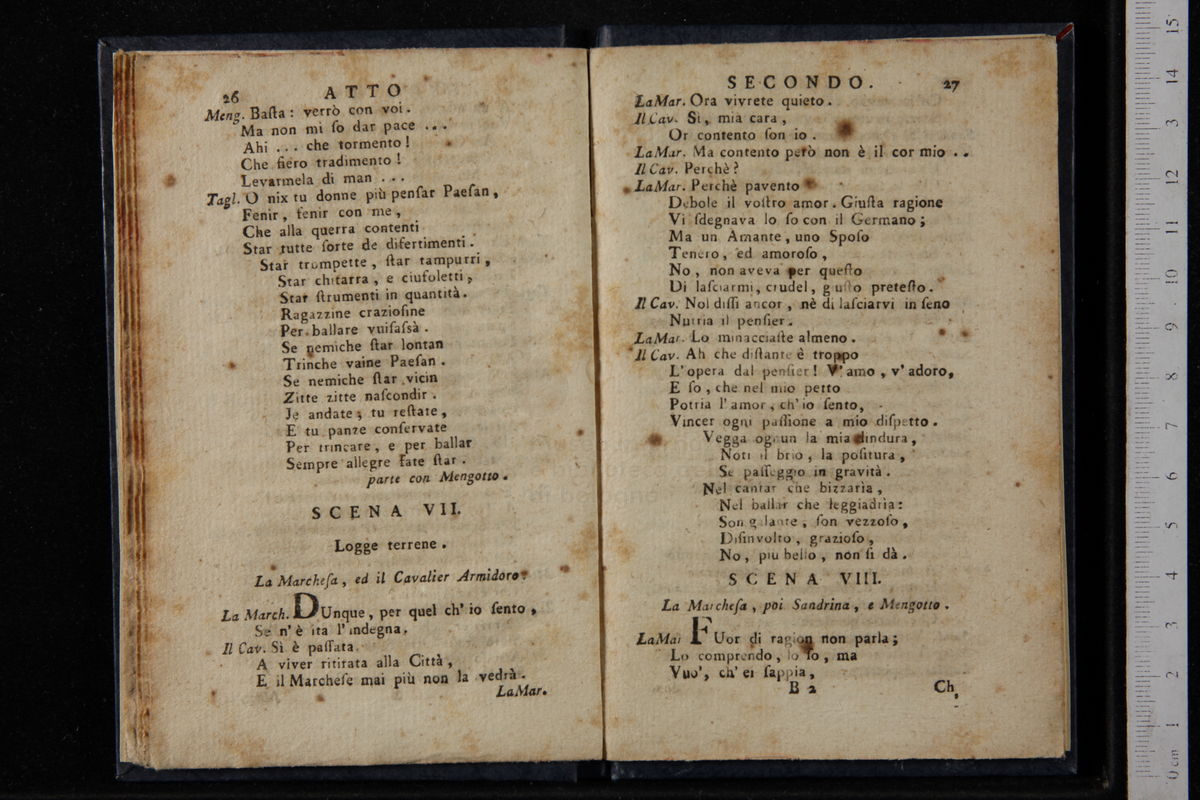 26 ATTO
Meng. Baſta: verrò con voi.
Ma non mi ſo dar pace ...
Ahi ... che tormento!
Che fiero tradimento!
Levarmela di man ...
Tagl. O nix tu donne più penſar Paeſan,
Fenir, fenir con me,
Che alla querra contenti
Star tutte ſorte de difertimenti.
Star trompette, ſtar tampurri,
Star chitarra, e ciufoletti,
Star ſtrumenti in quantità.
Ragazzine crazioſine
Per ballare vuiſaſsà.
Se nemiche ſtar lontan
Trinche vaine Paeſan.
Se nemiche ſtar vicin
Zitte zitte naſcondir.
Je andate; tu reſtate,
E tu panze conſervate
Per trincare, e per ballar
Sempre allegre fate ſtar.
parte con Mengotto.
SCENA VII.
Logge terrene.
La Marcheſa, ed il Cavalier Armidoro.
La March. DUnque, per quel ch' io ſento,
Se n' è ita l' indegna.
Il Cav. Sì è paſſata
A viver ritirata alla Città,
E il Marcheſe mai più non la vedrà.
LaMar.
SECONDO. 27
LaMar. Ora vivrete quieto.
Il Cav. Sì, mia cara,
Or contento ſon io.
LaMar. Ma contento però non è il cor mio ..
Il Cav. Perchè?
LaMar. Perchè pavento
Debole il voſtro amor. Giuſta ragione
Vi ſdegnava lo ſo con il Germano;
Ma un Amante, uno Spoſo
Tenero, ed amoroſo,
No, non aveva per queſto
Di laſciarmi, crudel, giuſto preteſto.
Il Cav. Nol diſſi ancor, nè di laſciarvi in ſeno
Nutria il penſier.
LaMar. Lo minacciaſte almeno.
Il Cav. Ah che diſtante è troppo
L' opera dal penſier! V' amo, v' adoro,
E ſo, che nel mio petto
Potria l' amor, ch' io ſento,
Vincer ogni paſſione a mio diſpetto.
Vegga ognun la mia dindura,
Noti il brio, la poſitura,
Se paſſeggio in gravità.
Nel cantar che bizzaria,
Nel ballar che leggiadria:
Son galante, ſon vezzoſo,
Diſinvolto, grazioſo,
No, più bello, non ſi dà.
SCENA VIII.
La Marcheſa, poi Sandrina, e Mengotto.
LaMar FUor di ragion non parla;
Lo comprendo, lo ſo, ma
Vuo', ch' ei ſappia,
B 2 Ch,
15
14
3
12
11
10
9
8
7
6
5
4
3
2
1
0 cm